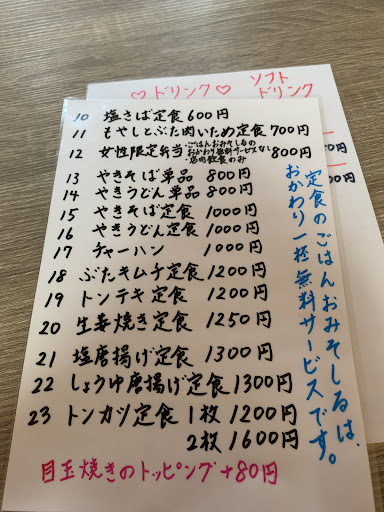 ♡ドリンク♡
ソフト
ドリンク
10 塩さば定食 600円
11 もやしとぶた肉いため定食 700円
12 女性限定弁当 ・ごはんおみそしるの おかわり無料サービスなし ・店内飲食のみ 800円
13 やきそば単品 800円
14 やきうどん単品 800円
15 やきそば定食 1000円
16 やきうどん定食 1000円
17 チャーハン 1000円
18 ぶたキムチ定食 1200円
19 トンテキ定食 1200円
20 生姜焼き定食 1250円
21 塩唐揚げ定食 1300円
22 しょうゆ唐揚げ定食 1300円
23 トンカツ定食 1枚 1200円
2枚 1600円
目玉焼きのトッピング+80円
定食のごはんおみそしるは、
おかわり一杯無料サービスです。